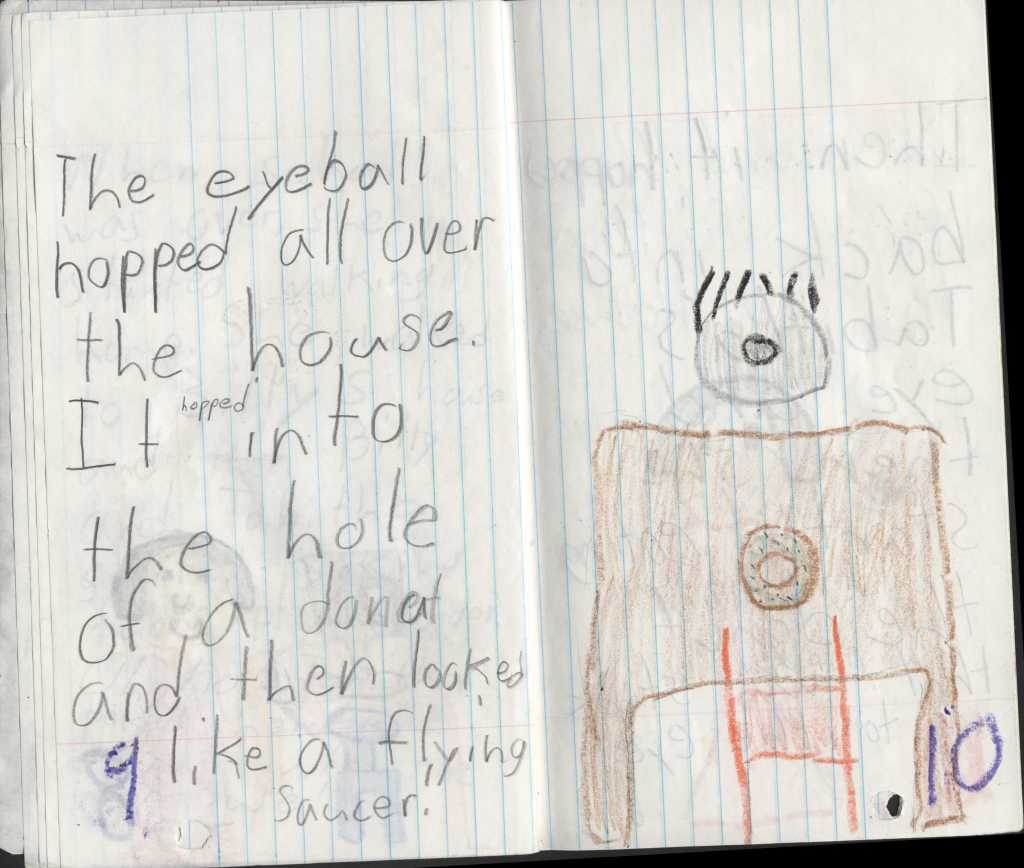 The eyeball
hopped all over
the house.
It hopped into
the hole
of a donat
and then looked
like a flying
saucer.
9
10